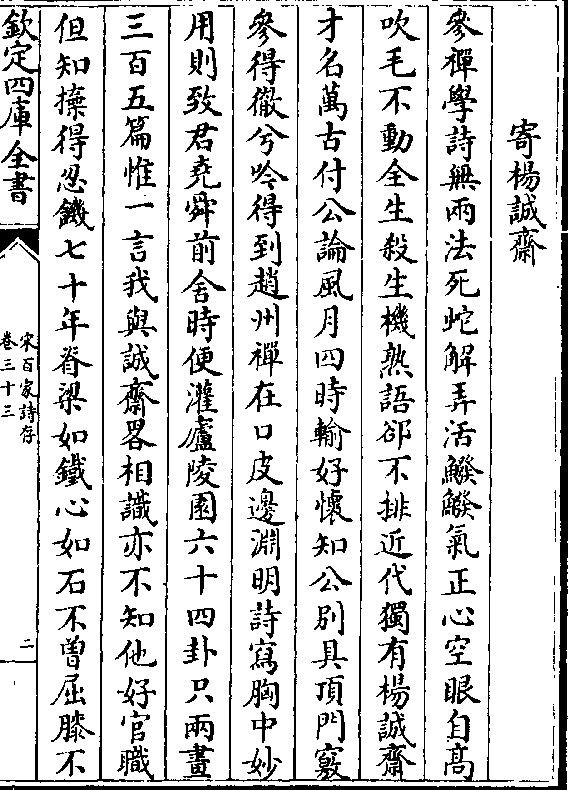 寄楊誠齋
參禪學詩無兩法死蛇解弄活鱍鱍氣正心空眼自髙
吹毛不動全生殺生機熟語郤不排近代獨有楊誠齋
才名萬古付公論風月四時輸好懷知公别具頂門竅
參得徹兮吟得到趙州禪在口皮邊淵明詩寫胸中妙
用則致君堯舜前舍時便灌廬陵園六十四卦只兩畫
三百五篇惟一言我與誠齋畧相識亦不知他好官職
但知𢹂得忍饑七十年脊梁如鐵心如石不曽屈膝不
欽定四庫全書
宋百家詩存
卷三十三
二